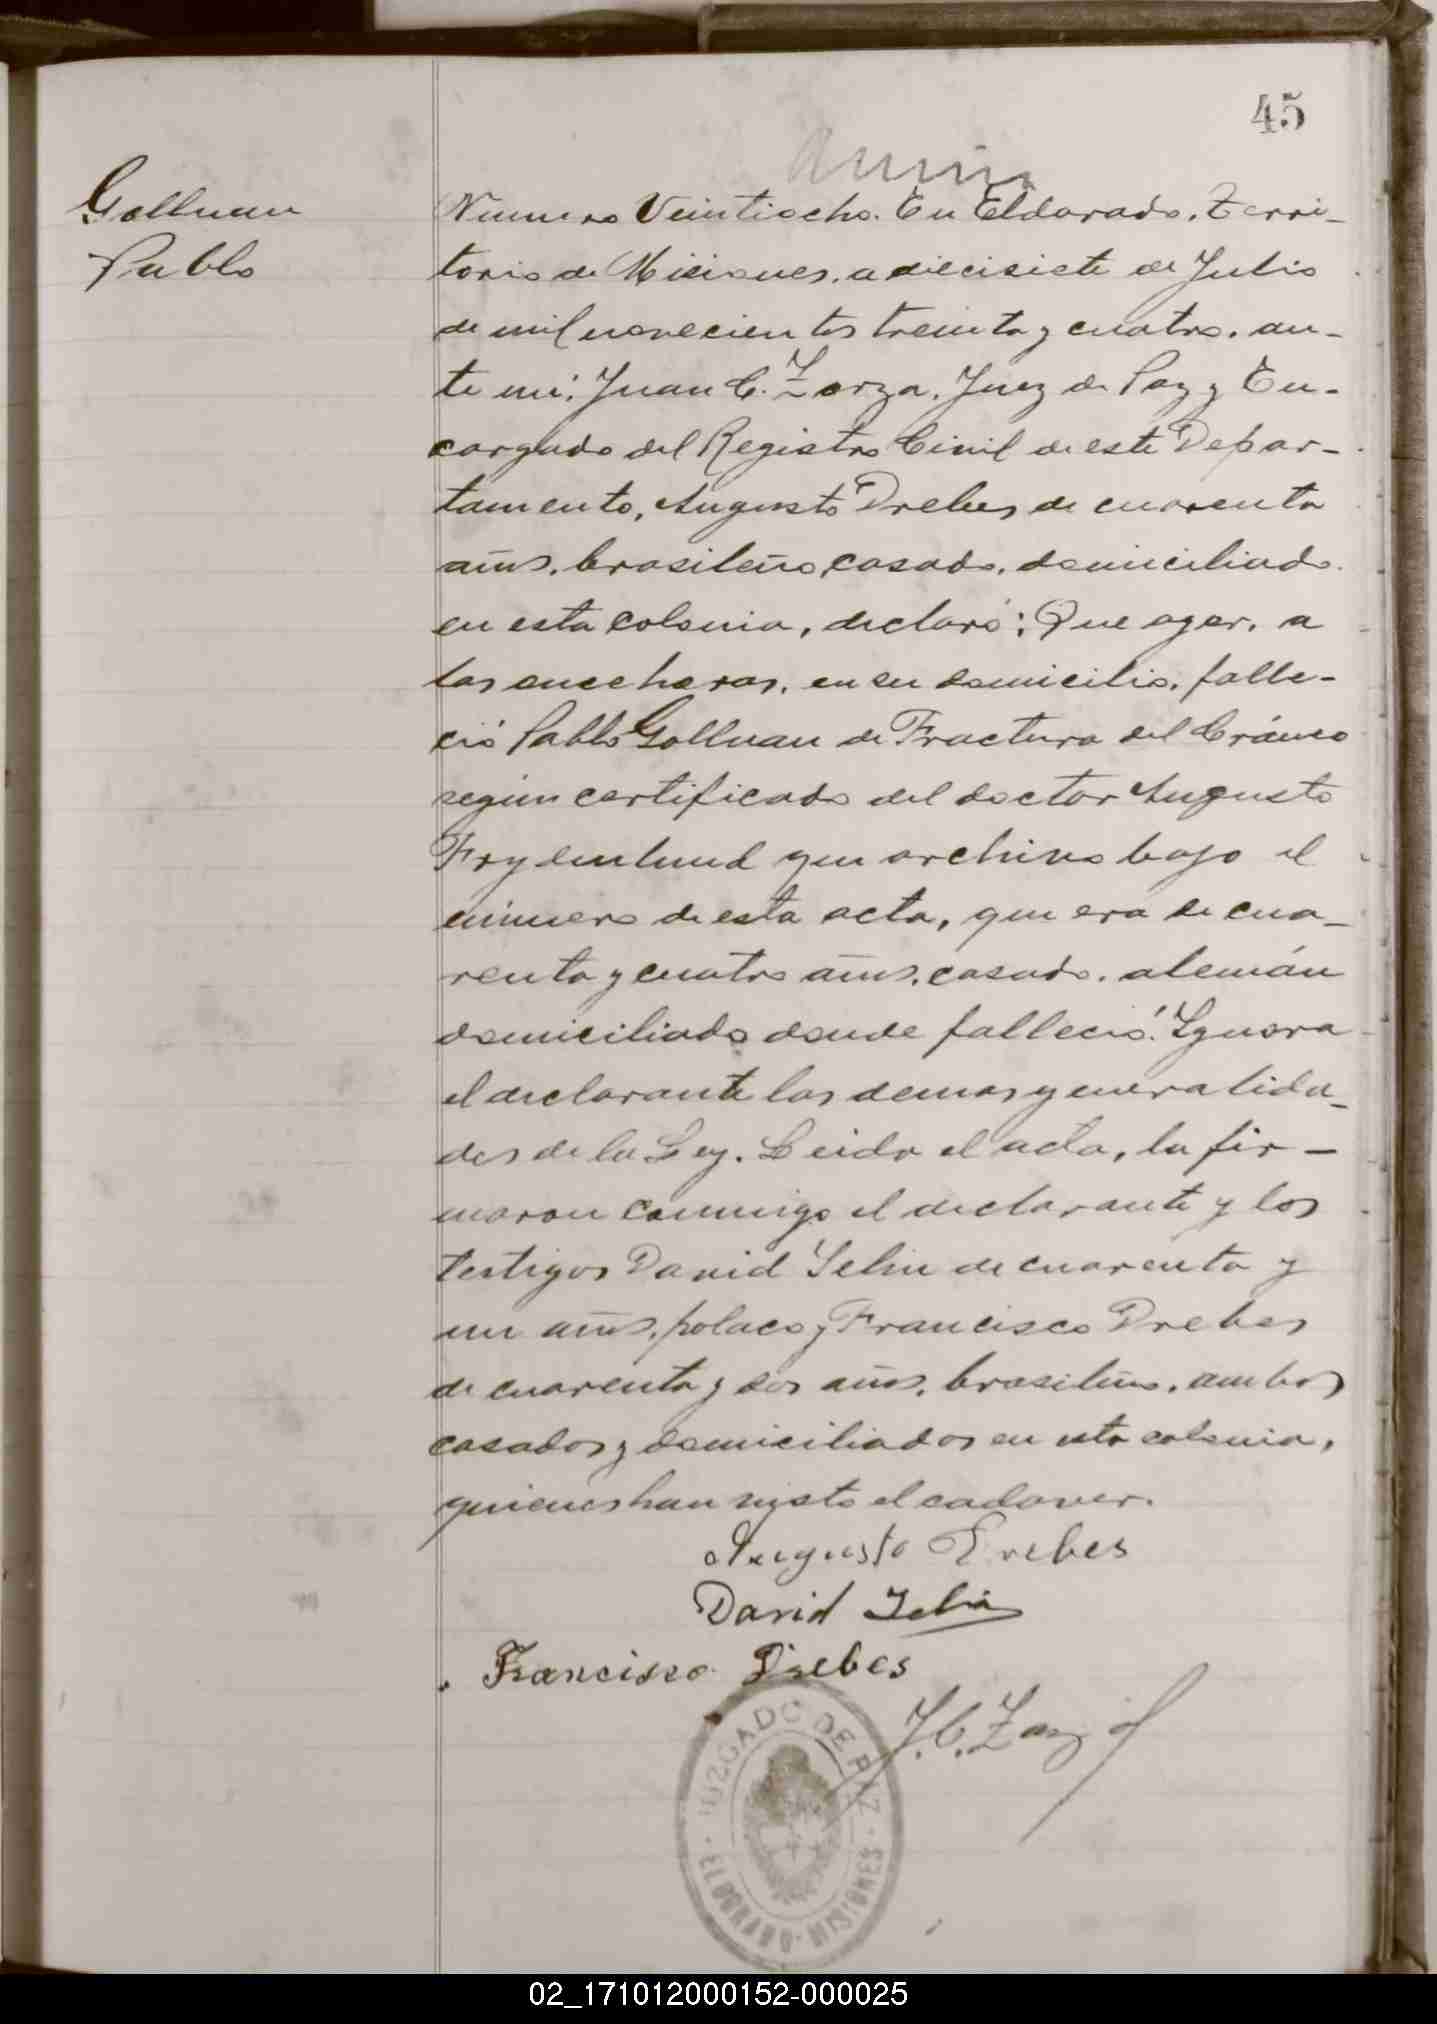 45
Gollnau
Pablo
Numero Veintiocho. En Eldorado, Terri-
torio de Misiones, a diecisiete de Julio
de mil novecientos treinta y cuatro, an-
te mi: Juan C. Zarza, Juez de Paz y En-
cargado del Registro Civil de este Depar-
tamento, Augusto Drebes de cuarenta
años, brasileño, casado, domiciliado
en esta colonia, declaró: Que ayer, a
las once horas, en su domicilio, falle-
ció Pablo Gollnau de Fractura del Cráneo
según certificado del doctor Augusto
Frydenlund que archivo bajo el
número de esta acta, que era de cua-
renta y cuatro años, casado, alemán
domiciliado donde falleció. Ignora
el declarante las demas generalida-
des de la Ley. Leida el acta, la fir-
maron conmigo el declarante y los
testigos David de cuarenta y
un años, polaco y Francisco Drebes
de cuarenta y dos años, brasileño, ambos
casados y domiciliados en esta colonia,
quienes han visto el cadaver.
Augusto Drebes
David
Francisco Drebes
J. C. Zarza
JUZGADO DE PAZ
ELDORADO - MISIONES
02_171012000152-000025